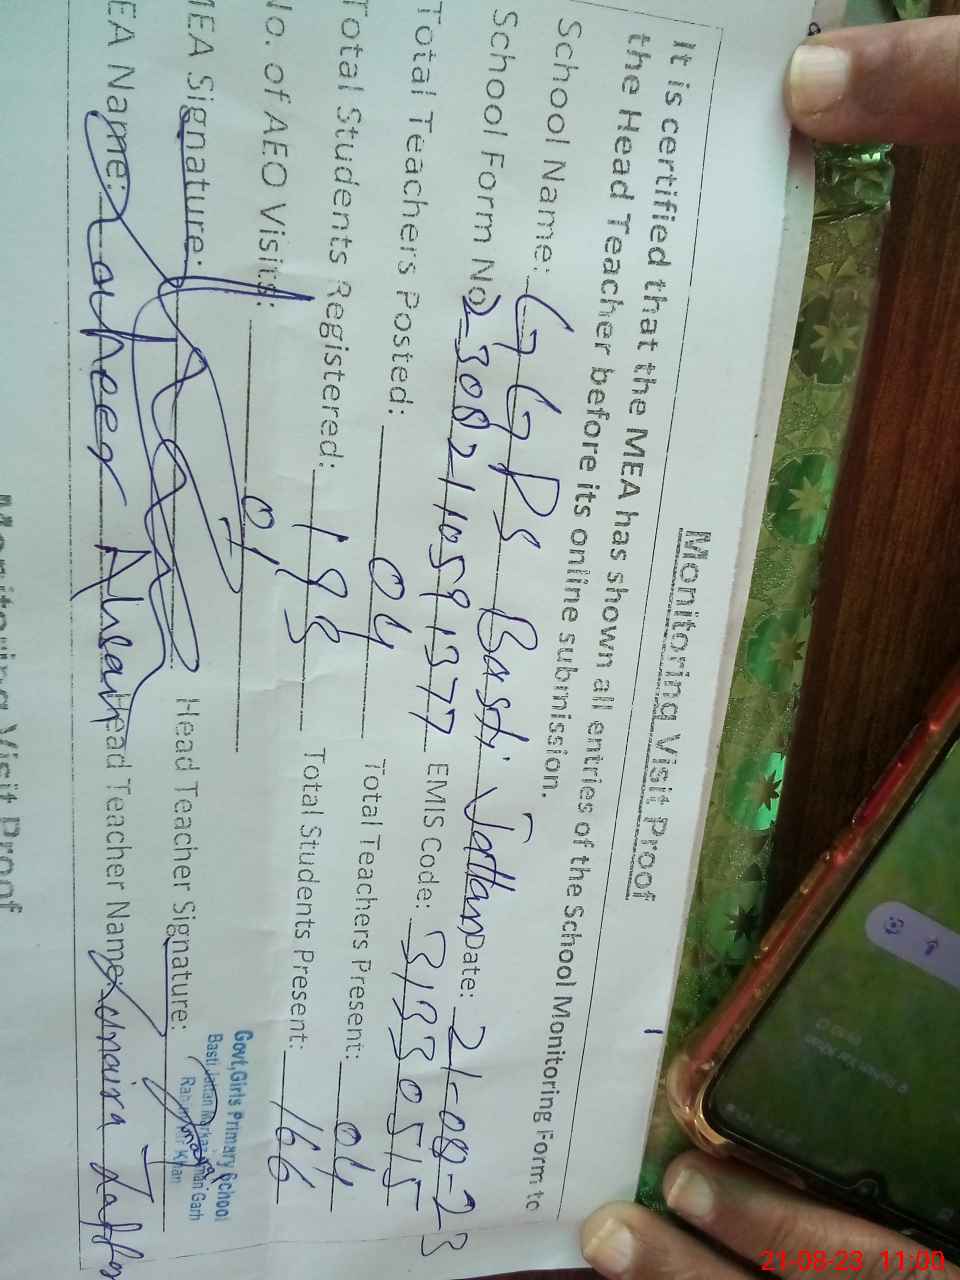 Monitoring Visit Proof
It is certified that the MEA has shown all entries of the School Monitoring Form to
the Head Teacher before its online submission.
School Name: GGPS Basti Jattan Date: 21-08-23
School Form No. 230821105913 77 EMIS Code: 31330515
Total Teachers Posted: 04 Total Teachers Present: 04
Total Students Registered: 198 Total Students Present: 166
No. of AEO Visits: 01
MEA Signature: Head Teacher Signature:
Govt, Girls Primary School
Basti Jattan
Khan
EA Name: Head Teacher Name:
Monitoring Visit Proof
21-08-23 11:00